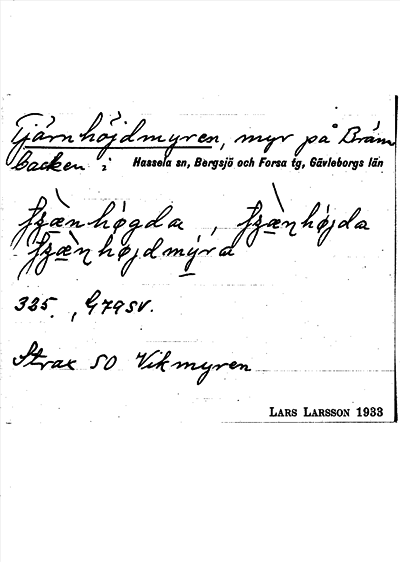 Tjärnhöjdmyren, myr på Bräm
backen i Hassela sn, Bergsjö och Forsa tg, Gävleborgs län
høgda, højda
højdmýra
325., G79SV.
Strax SO Vikmyren
LARS LARSSON 1933